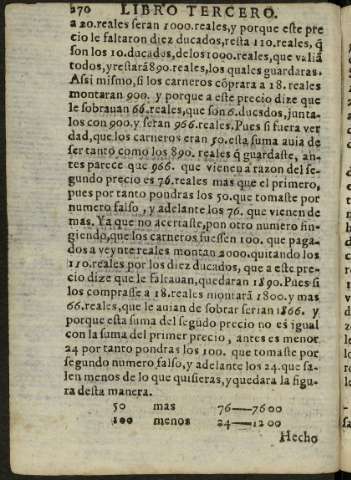 270 LIBRO TERCERO.
a 20.reales seran 1000.reales,y porque este pre
cio le faltaron diez ducados, resta 110.reales, q̃
son los 10.ducados, delos 1000.reales, que valiã
todos, y restará 890.reales, los quales guardaras.
Assi mismo, si los carneros cõprara a 18. reales
montaran 900. y porque a este precio dize que
le sobrauan 66.reales, que son 6.ducsdos, junta-
los con 900.y seran 966.reales. Pues si fuera ver
dad, que los carneros eran 50.esta suma auia de
ser tanto como los 890. reales q̃ guardaste, an-
tes parece que 966. que vienen a razon del se-
gundo precio es 76.reales mas que el primero,
pues por tanto pondras los 50.que tomaste por
numero falso, y adelante los 76. que vienen de
mas. Ya que no acertaste, pon otro numero fin-
giendo, que los carneros fuessen 100. que paga-
dos a veynte reales montan 2000.quitando los
110.reales por los diez ducados, que a este pre-
cio dize que le faltauan, quedaran 1890. Pues si
los comprasse a 18.reales montará 1800.y mas
66.reales, que le auian de sobrar serian 1866. y
porque esta suma del segũdo precio no es igual
con la suma del primer precio, antes es menor
24 por tanto pondras los 100. que tomaste por
segundo numero falso, y adelante los 24.que sa-
len menos de lo que quisieras, y quedara la figu-
ra desta manera.
50 mas 76—7600
100 menos 24—1200
Hecho